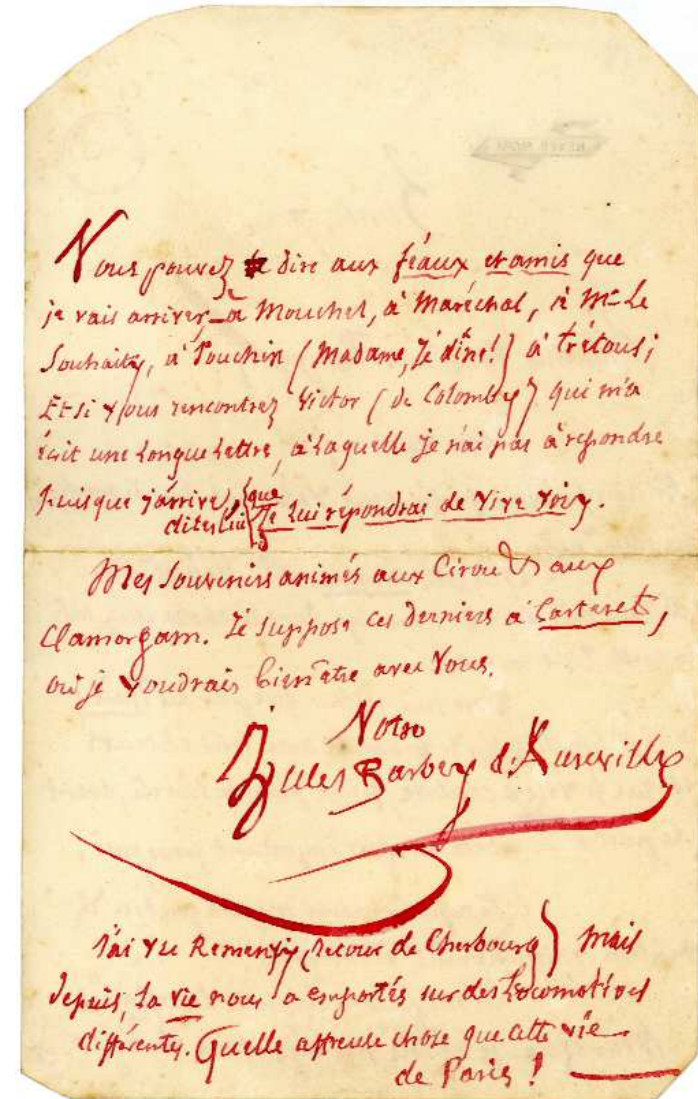 Vous pouvez dire aux féaux et amis que
je vais arriver, – à Mouchel, à Maréchal, à Mr Le
Souhaity, à Pouchin (Madame, Je dîne!) à trétous;
Et si vous rencontrez Victor (de Colomby) qui m'a
écrit une longue lettre, à laquelle je n'ai pas à répondre
puisque j'arrive, que
dites lui Je lui répondrai de vive voix.
Mes souvenirs animés aux Cirou et aux
Clamorgam. Je suppose ces derniers à Carteret,
où je voudrais bien être avec vous.
Votre
Jules Barbey d'Aurevilly
J'ai vu (retour de Cherbourg) mais
depuis, la vie nous a emportés sur des Locomotives
différentes. Quelle affreuse chose que cette vie
de Paris!